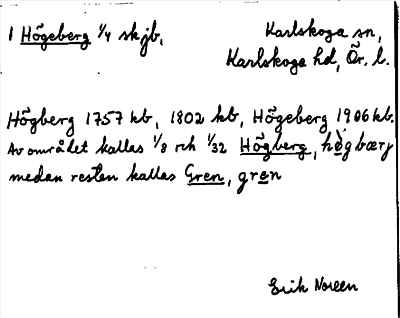 1 Högeberg 1/4 skjb, Karlskoga sn,
Karlskoga hd, Ör. l.
Högberg 1757 kb, 1802 kb, Högeberg 1906 kb.
Av området kallas 1/8 och 1/32 Högberg, hö̀gbærj
medan resten kallas Gren, gren
Erik Noreen